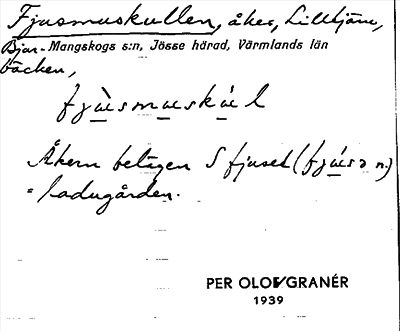 Fjusmuskullen, åker, Lilltjärn,
Bjur- Mangskogs s:n, Jösse härad, Värmlands län
bäcken,
fjùsmuskúl
Åkern belägen S fjuset (fjúsə n.)
= ladugården.
PER OLOV GRANÉR
1939